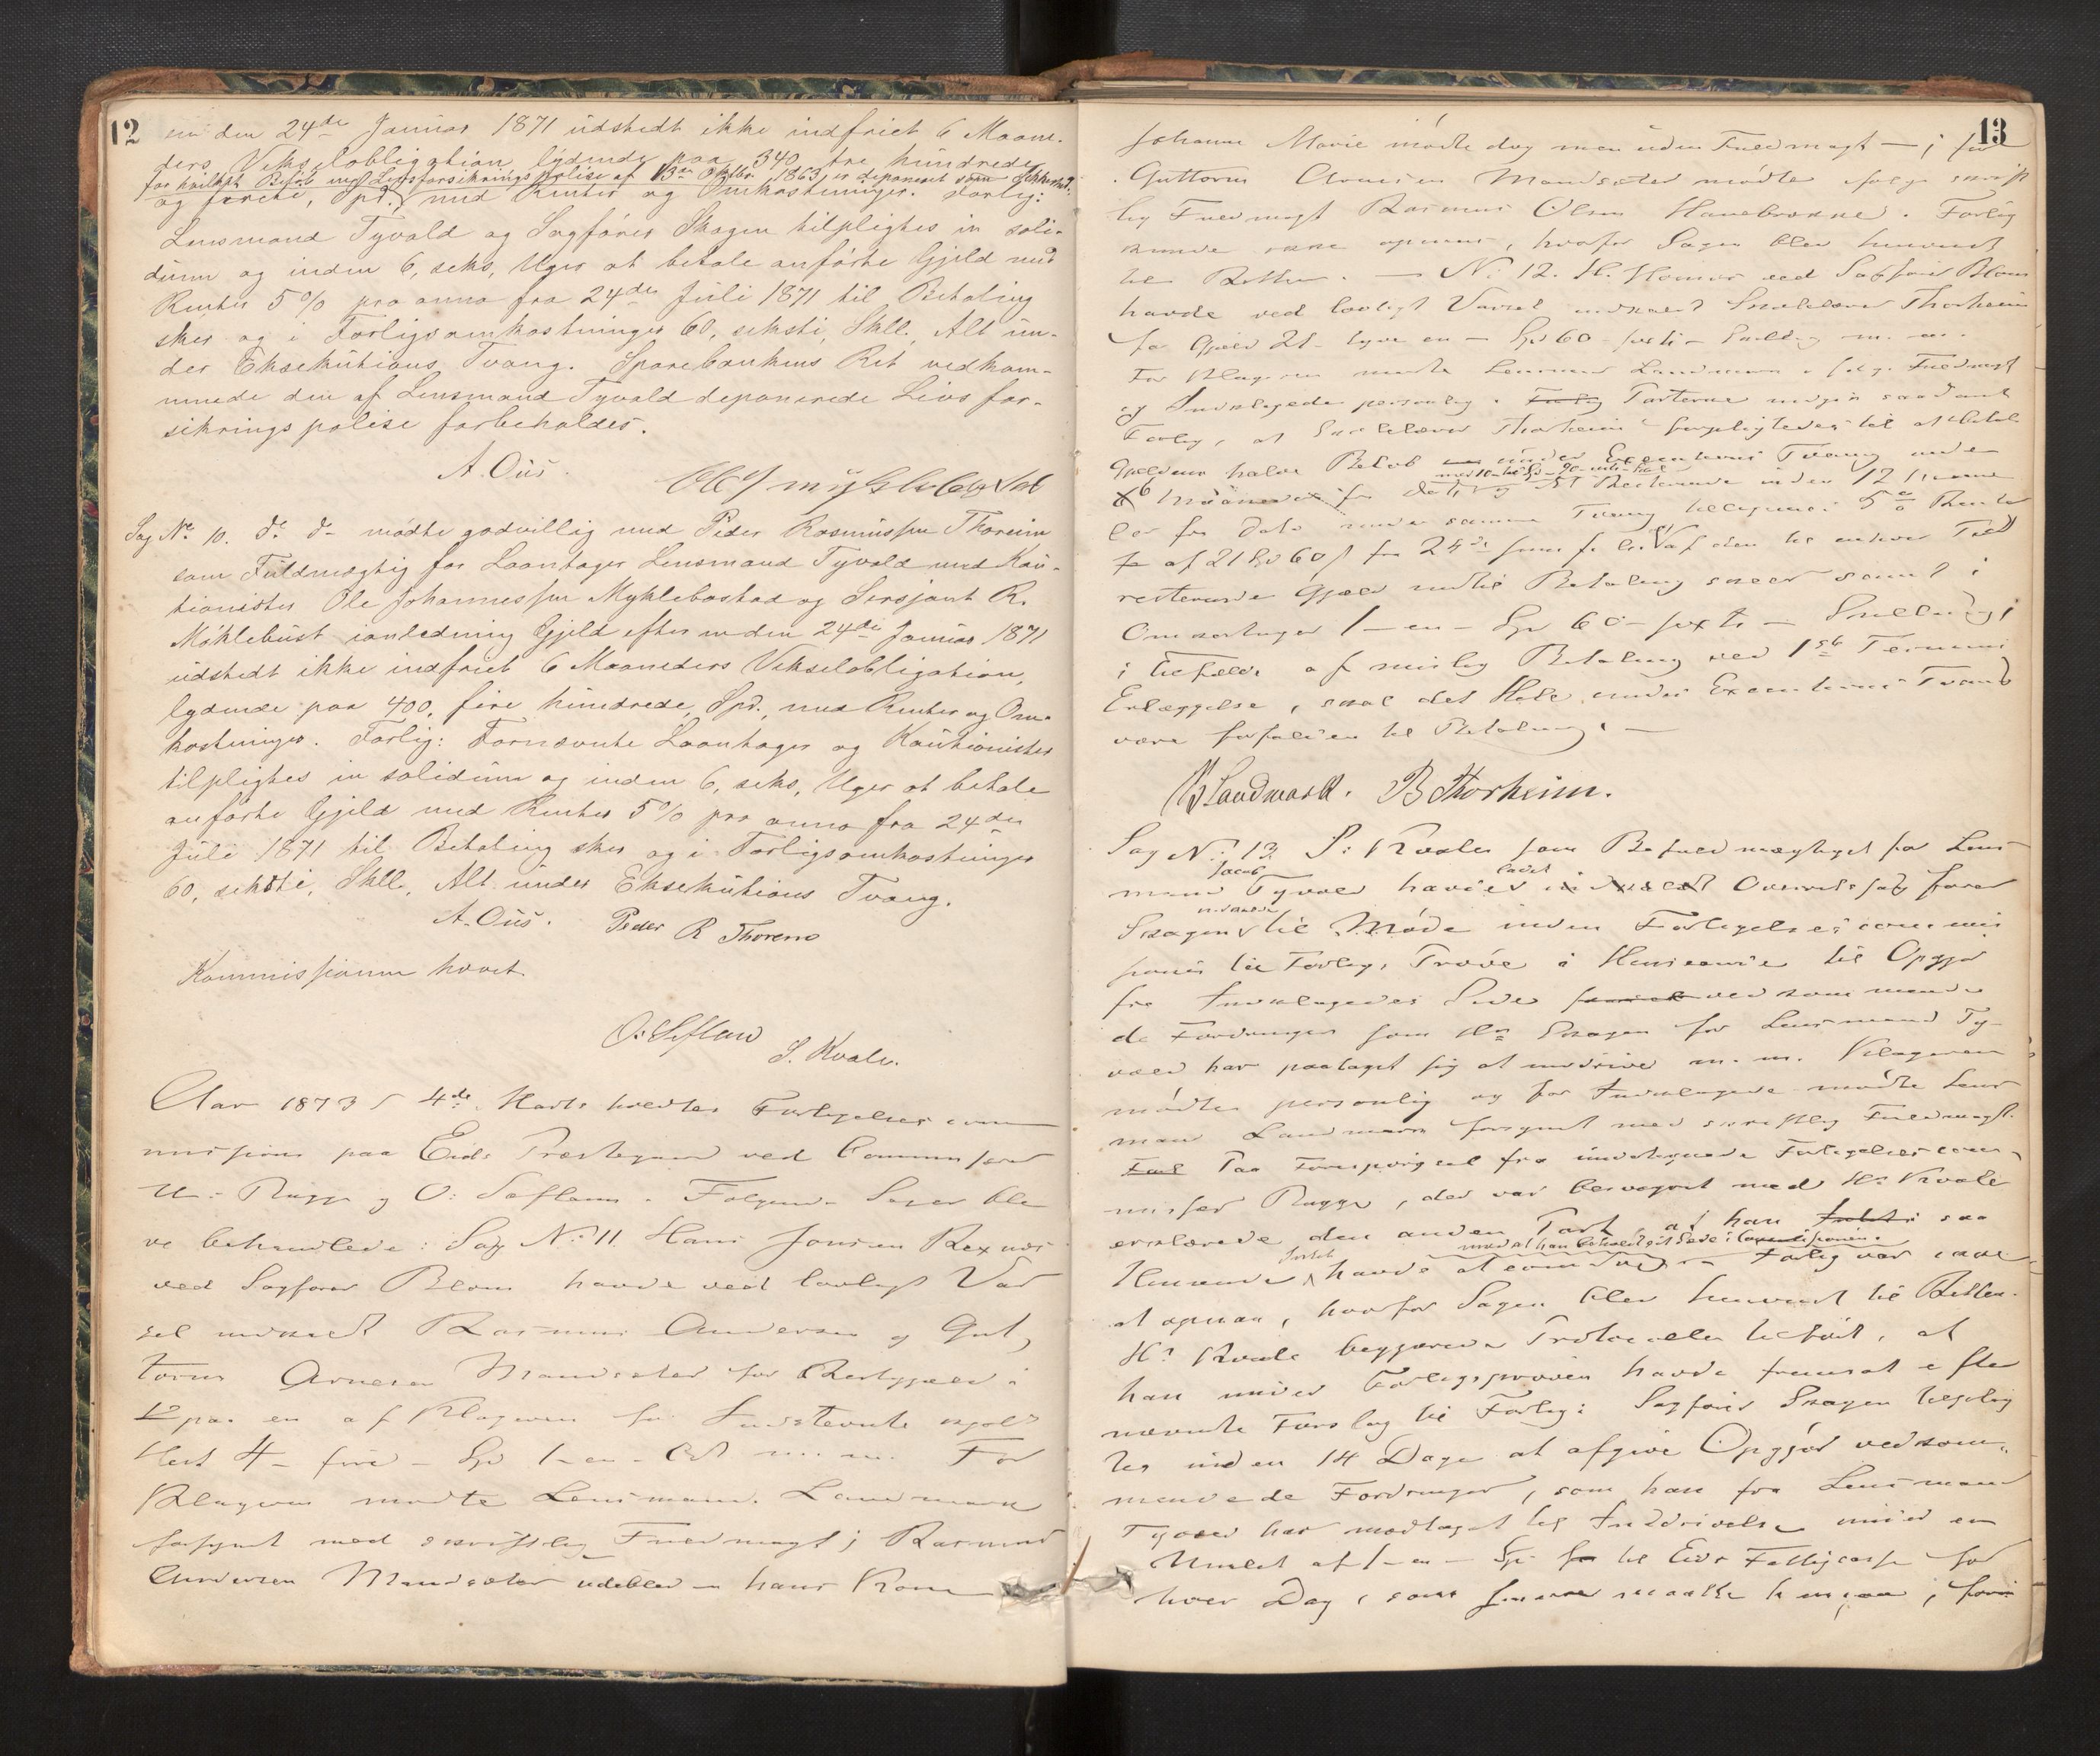 12
en den 24de Januar 1871 udstedt ikke indfriet 6 Maane-
ders Vekselobligation lydende paa 340 tre hundrede
for hvilket Beløb med Livsforsikrings polise af 13de Oktbr. 1863, er deponeret som Sikkerhed.
og førti, Spd. med Renter og Omkostninger. Forlig:
Lensmand Tyvold og Sagfører Skagen tilpligtes in soli-
dum og inden 6, seks, Uger at betale anførte Gjeld med
Renter 5 % pro anno fra 24de Juli 1871 til Betaling
sker og i Forligsomkostninger 60, seksti, Skll. Alt un-
der Eksekutions Tvang. Sparebankens Ret vedkom-
mende den af Lensmand Tyvold deponerede Livsfor-
sikrings polise forbeholdes.
A. Ous.
Sag No 10. do do mødte godvillig med Peder Rasmussen Thoreim
som Fuldmægtig for Laantager Lensmand Tyvold med Kau-
tionister Ole Johannessen Myklebostad og Sersjant R.
Möklebust ianledning Gjeld efter en den 24de Januar 1871
udstedt ikke indfriet 6 Maaneders Vekselobligation,
lydende paa 400, fire hundrede, Spd., med Renter og Om-
kostninger. Forlig: Fornævnte Laantager og Kautionister
tilpligtes in solidum og inden 6, seks, Uger at betale
anførte Gjeld med Renter 5 % pro anno fra 24de
Juli 1871 til Betaling sker og i Forligsomkostninger
60, seksti, Skll. Alt under Eksekutions Tvang.
A. Ous. Peder R Thoreim
Kommissionen hævet.
O: Seflan S. Kvale.
Aar 1873 4de Marts holdtes Forligelsescom
mission paa Eids Præstegaard ved Commissær
Rugge og O: Søfland. Følgende Sager ble
ve behandlede: Sag No 11 Hans Jonsen
ved Sagfører Blom havde ved lovligt Var
sel indkaldt Rasmus Andersen og Gut
torm Arnesen Mandsæter for Restgjæld i
paa en af Klageren for Indstevnte solgt
Hest 4 - fire - Spd 1 - en - Ort m. m. For
Klageren mødte Lensmand Landmark
forsynt med skriftlig Fuldmagt; Rasmus
Andersen Mandsæter udeblev - hans Kone
13
Johanne Marie mødte dog men uden Fuldmagt - ; for
Guttorm Arnesen Mandsæter mødte ifølge skrift
lig Fuldmagt Rasmus Olsen . Forlig
kunde ikke opnaaes, hvorfor Sagen blev henvist
til Retten. - No 12. H. ved Sagfører Blom
havde ved lovligt Varsel indkaldt Skolelærer Thorheim
for Gjæld 21 - tyve en - Spd 60 - sexti - Skilling m. m.
For Klageren mødte Lensmand Landmark i følge Fuldmagt
og Indklagede personlig. Forlig Parterne indgik saadant
Forlig, at Skolelærer Thorheim forpligtedes til at betale
Gjældens halve Beløb under Executions Tvang inden
med 10 - ti Spd - 90 - Skil
6 Maaneder fra Dato og det Resterende inden 12 Maane
der fra Dato under samme Tvang tilligemed 5 % Rente
af 21 Spd 60 s fra 24de og af den til enhver Tid
resterende Gjæld indtil Betaling skeer samt i
Omkostninger 1 - en - Spd 60 - sexti - Skilling;
i Tilfælde af mislig Betaling ved 1ste Termins
Erlæggelse, skal det Hele under Executions Tvang
være forfalden til Betaling. -
Landmark. B Thorheim.
Sag No 13 S: Kvale som Befuldmægtiget for Lens
Jacob ladet
mand Tyvold havde indkaldt Overretssagfører
indkalde
Skagen til Møde inden Forligelsescommis
sionen til Forligs Prøve i Henseende til Opgjør
fra Indklagedes Side vedkommende
de Fordringer som Hr Skagen for Lensmand Ty-
vold har paataget sig at inddrive m. m. Klageren
mødte personlig og for Indklagede mødte Lens
mand Landmark forsynt med skriftlig Fuldmagt.
Forl Paa Forespørgsel fra undertegnede Forligelsescom-
missær Rugge, der var besvogret med Hr Kvale
erklærede den anden Part, at han saa
mod at han beholdt sit Sæde i Commissionen.
Henseende Intet havde at Forlig var ikke
at opnaa, hvorfor Sagen blev henvist til Retten.
Hr Kvale begjærede Protocollen tilført, at
han under Forligsprøven havde fremsat efter
nævnte Forslag til Forlig: Sagfører Skagen tilplig
tes inden 14 Dage at afgive Opgjør vedkom-
mende de Fordringer, som han fra Lensmand
Tyvold har modtaget til Inddrivelse under en
Mulct af 1 - en - Spd til Eids Fattigcasse for
hver Dag, som maatte hengaa, for